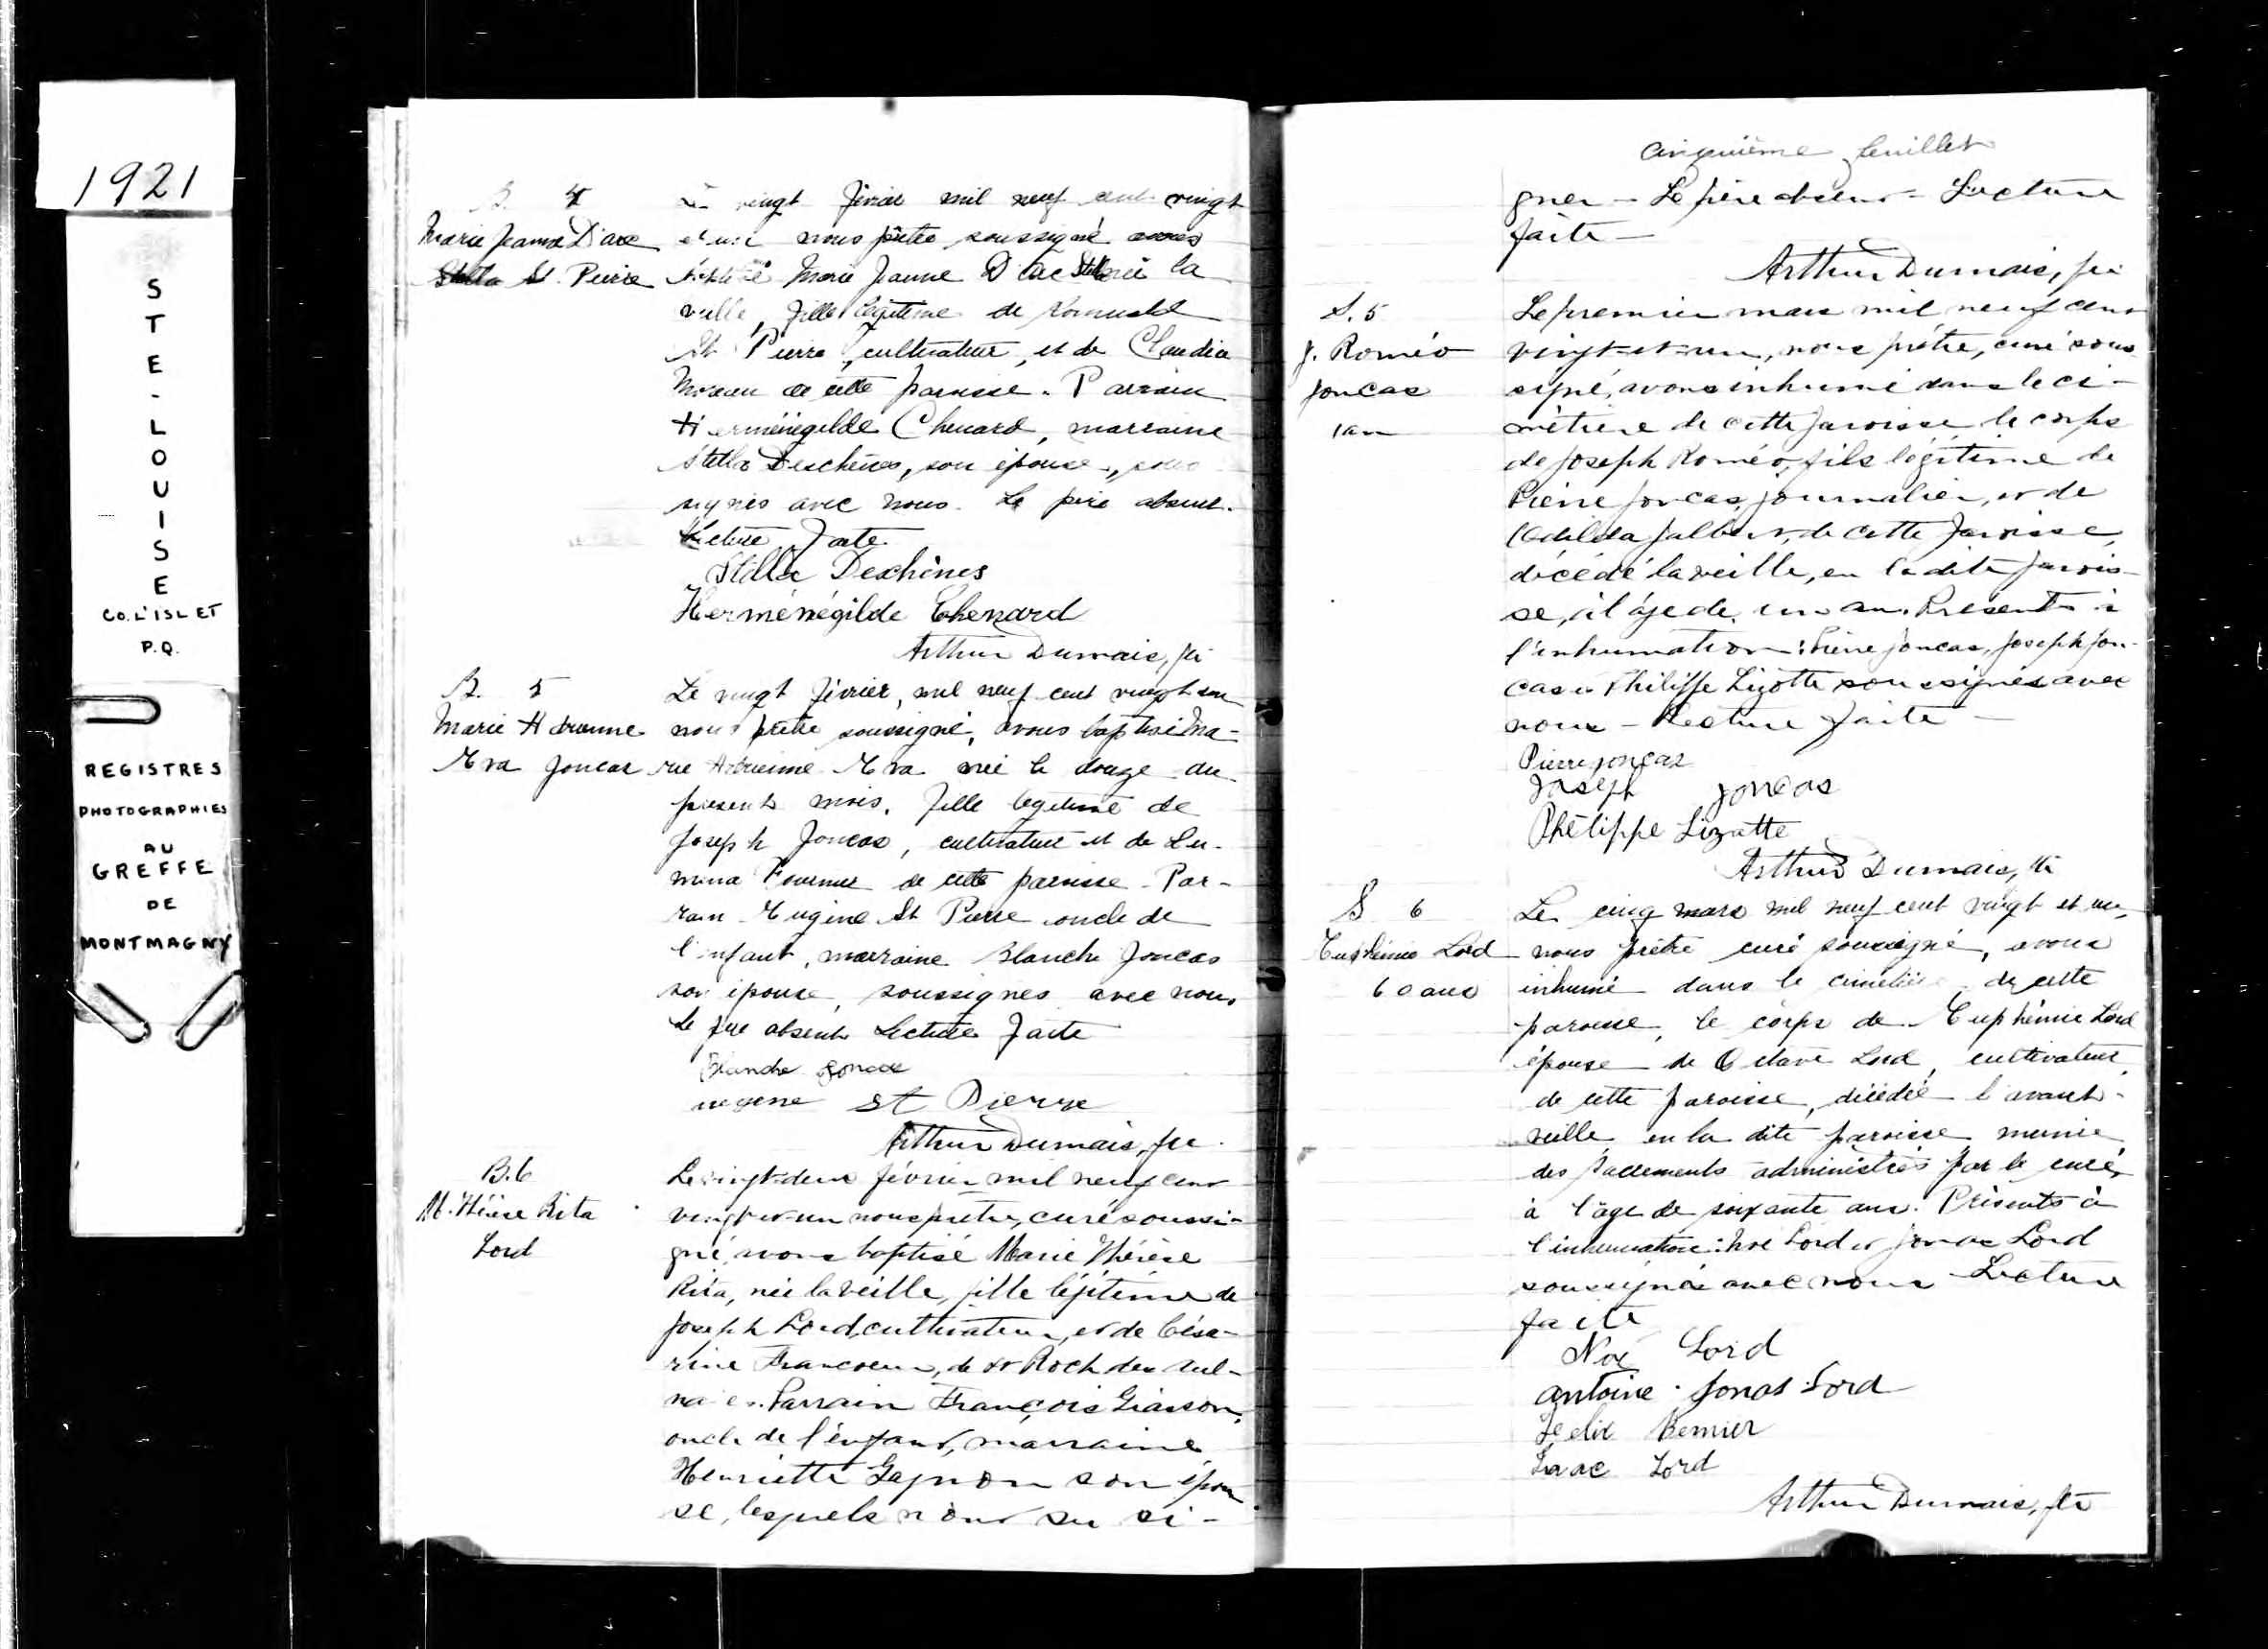 1921
STE-LOUISE
CO. L'ISLET
P.Q.
REGISTRES
PHOTOGRAPHIES
AU
GREFFE
DE
MONTMAGNY
B. 4
Marie Jeanne D'arc
Stella St. Pierre
vingt février mil neuf cent vingt
et un nous prêtre soussigné avons
baptisé Marie Jeanne D'arc Stella née la
veille, fille légitime de Romuald
St Pierre, cultivateur, et de Claudia
de cette paroisse. Parrain
Herménégilde Chenard, marraine
Stella Deschênes, son épouse, sous
signés avec nous. Le père absent.
Lecture faite
Stella Deschênes
Herménégilde Chenard
Arthur Dumais, ptre
B. 5
Marie Adrienne
Eva Joncas
Le vingt février, mil neuf cent vingt un
nous prêtre soussigné, avons baptisé Ma-
rie Adrienne Eva née le douze du
présent mois, fille légitime de
Joseph Joncas, cultivateur et de Lu-
mina Fournier de cette paroisse. Par-
rain Eugène St Pierre oncle de
l'enfant, marraine Blanche Joncas
son épouse, soussignés avec nous,
Le père absent Lecture faite
Blanche Joncas
St Pierre
Arthur Dumais, ptre
B. 6
M. Thérèse Rita
Lord
Le vingt-deux février mil neuf cent
vingt et un nous prêtre, curé soussi-
gné, avons baptisé Marie Thérèse
Rita, née la veille, fille légitime de
Joseph Lord, cultivateur, et de Césa-
rine Francoeur, de St Roch des Aul-
naies. Parrain François Giasson,
oncle de l'enfant, marraine
Henriette Gagnon son épou
se, lesquels n'ont su si-
Cinquième feuillet
gner - Le père absent - Lecture
faite -
Arthur Dumais, ptre
S. 5
J. Roméo
Joncas
1 an
Le premier mars mil neuf cent
vingt-et-un, nous prêtre, curé sous
signé, avons inhumé dans le ci-
mètière de cette paroisse le corps
de Joseph Roméo, fils légitime de
Pierre Joncas, journalier, et de
Jalbert, de cette paroisse,
décédé la veille, en la dite parois-
se, à l'âge de un an. Présents à
l'inhumation : Pierre Joncas, Joseph Jon-
cas et Philippe Lizotte soussignés avec
nous - Lecture faite -
Pierre Joncas
Joseph Joncas
Phélippe Lizotte
Arthur Dumais, ptre
S 6
Euphémie Lord
60 ans
Le cinq mars mil neuf cent vingt et un,
nous prêtre curé soussigné, avons
inhumé dans le cimetière de cette
paroisse, le corps de Euphémie Lord
épouse de Octave Lord, cultivateur,
de cette paroisse, décédée l'avant-
veille en la dite paroisse munie
des sacrements administrés par le curé,
à l'âge de soixante ans. Présents à
l'inhumation : Noé Lord et Jonas Lord
soussignés avec nous Lecture
faite
Noé Lord
antoine Jonas Lord
Felix Bernier
Isaac Lord
Arthur Dumais, ptre